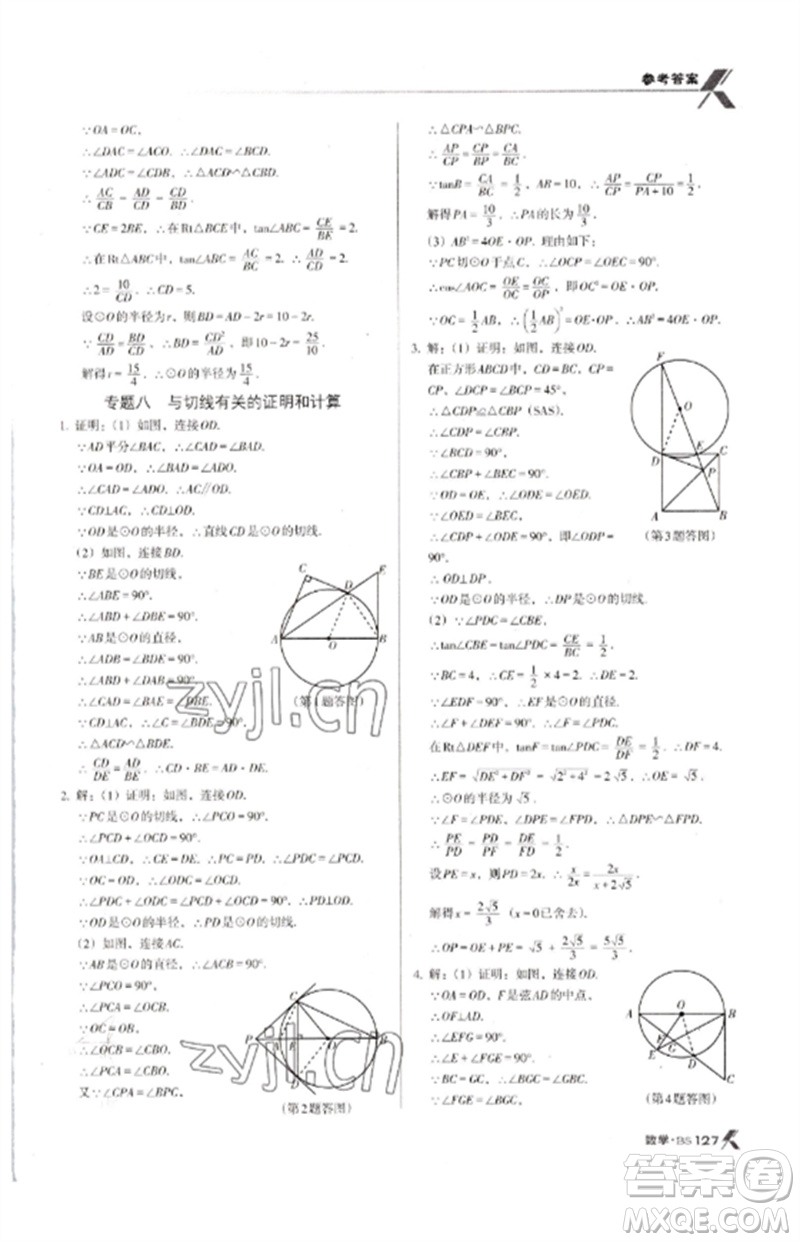 参考答案
∵OA=OC,
∴∠DAC=∠ACO. ∴∠DAC=∠BCD.
∵∠ADC=∠CDB, ∴△ACD∽△CBD.
∴AC/CB=AD/CD=CD/BD.
∵CE=2BE, ∴在Rt△BCE中, tan∠ABC=CE/BE=2.
∴在Rt△ABC中, tan∠ABC=AC/BC=2. ∴AD/CD=2.
∴2=10/CD. ∴CD=5.
设⊙O的半径为r, 则BD=AD-2r=10-2r.
∵CD/AD=BD/CD, ∴BD=CD²/AD, 即10-2r=25/10.
解得r=15/4. ∴⊙O的半径为15/4.
专题八 与切线有关的证明和计算
1. 证明:(1)如图,连接OD.
∵AD平分∠BAC, ∴∠CAD=∠BAD.
∵OA=OD, ∴∠BAD=∠ADO.
∴∠CAD=∠ADO. ∴AC∥OD.
∵CD⊥AC, ∴CD⊥OD.
∵OD是⊙O的半径, ∴直线CD是⊙O的切线.
(2)如图,连接BD.
∵BE是⊙O的切线,
∴∠ABE=90°.
∴∠ABD+∠DBE=90°.
∵AB是⊙O的直径,
∴∠ADB=90°.
∴∠ABD+∠BAD=90°.
∴∠CAD=∠BAD=∠DBE.
∵CD⊥AC, ∴∠C=∠BDE=90°.
∴△ACD∽△BDE.
∴CD/DE=AD/BE. ∴CD·BE=AD·DE.
C D E A O B
(第1题答图)
2. 解:(1)证明:如图,连接OD.
∵PC是⊙O的切线, ∴∠PCO=90°.
∴∠PCD+∠OCD=90°.
∵OA⊥CD, ∴CE=DE. ∴PC=PD. ∴∠PDC=∠PCD.
∵OC=OD, ∴∠ODC=∠OCD.
∴∠PDC+∠ODC=∠PCD+∠OCD=90°.
∵OD是⊙O的半径, ∴PD是⊙O的切线.
(2)如图,连接AC.
∵AB是⊙O的直径, ∴∠ACB=90°.
∵∠PCO=90°,
∴∠PCA=∠OCB.
∵OC=OB,
∴∠OCB=∠CBO.
∴∠PCA=∠CBO.
又∵∠CPA=∠BPC,
C P A E O B D
(第2题答图)
∴△CPA∽△BPC.
∴AP/CP=CP/BP=CA/BC.
∵tanB=CA/BC=1/2, AB=10, ∴AP/CP=CP/(PA+10)=1/2.
解得PA=10/3. ∴PA的长为10/3.
(3)AB²=4OE·OP. 理由如下:
∵PC切⊙O于点C, ∴∠OCP=∠OEC=90°.
∴cos∠AOC=OE/OC=OC/OP, 即OC²=OE·OP.
∵OC=1/2AB, ∴(1/2AB)²=OE·OP. ∴AB²=4OE·OP.
3. 解:(1)证明:如图,连接OD.
在正方形ABCD中, CD=BC, CP=
CP, ∠DCP=∠BCP=45°,
∴△CDP≌△CBP(SAS).
∴∠CDP=∠CBP.
∵∠BCD=90°,
∴∠CBP+∠BEC=90°.
∵OD=OE, ∴∠ODE=∠OED.
∵∠OED=∠BEC,
∴∠CDP+∠ODE=90°, 即∠ODP=
90°.
∴OD⊥DP.
∵OD是⊙O的半径, ∴DP是⊙O的切线.
F O D E C P A B
(第3题答图)
(2)∵∠CBE=∠PDC,
∴tan∠CBE=tan∠PDC=CE/BC=1/2.
∵BC=4, ∴CE=1/2×4=2. ∴DE=2.
∵∠EDF=90°, ∴EF是⊙O的直径.
∴∠F+∠DEF=∠PDE+∠ODE=90°.
∴∠F=∠PDE.
在Rt△DEF中, tanF=tan∠PDC=DE/DF=1/2. ∴DF=4.
∴EF=√(DE²+DF²)=√(2²+4²)=2√5.
∴⊙O的半径为√5.
∵∠F=∠PDE, ∠DPE=∠FPD, ∴△DPE∽△FPD.
∴PE/PD=PD/PF=DE/FD=1/2.
设PE=x, 则PD=2x. ∴x/2x=2x/(x+2√5).
解得x=2√5/3 (x=0已舍去).
∴OP=OE+PE=√5+2√5/3=5√5/3.
4. 解:(1)证明:如图,连接OD.
∵OA=OD, F是弦AD的中点,
∴OF⊥AD.
∴∠EFG=90°.
∴∠E+∠EGF=90°.
∵BC=GC, ∴∠GBC=∠BGC.
∵∠EGF=∠BGC,
A O B F G E D C
(第4题答图)
数学·BS 127
zyjl.cn
zyjl.cn
答案卷
MXQE.COM